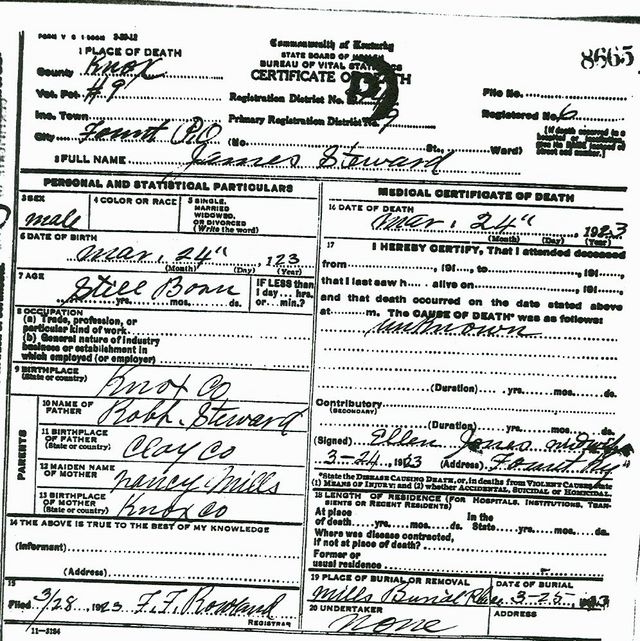 FORM V S 1
Commonwealth of Kentucky
STATE BOARD OF HEALTH
BUREAU OF VITAL STATISTICS
CERTIFICATE OF DEATH
8665
1 PLACE OF DEATH
County Knox
Vot. Pct. #9
Inc. Town
City Fount P.O.
Registration District No.
Primary Registration District No.
File No.
Registered No. 6
(No. St., Ward)
[If death occurred in a
street and number.]
2 FULL NAME James Steward
PERSONAL AND STATISTICAL PARTICULARS
3 SEX male
4 COLOR OR RACE
5 SINGLE, MARRIED WIDOWED, OR DIVORCED (Write the word)
6 DATE OF BIRTH
Mar. 24", 123
(Month) (Day) (Year)
7 AGE Still Born
yrs. mos. ds.
IF LESS than 1 day... hrs. or... min.?
8 OCCUPATION
(a) Trade, profession, or particular kind of work
(b) General nature of industry
business or establishment in
which employed (or employer)
9 BIRTHPLACE (State or country) Knox Co
PARENTS
10 NAME OF FATHER Robt. Steward
11 BIRTHPLACE OF FATHER (State or country) Clay Co
12 MAIDEN NAME OF MOTHER Nancy Mills
13 BIRTHPLACE OF MOTHER (State or country) Knox Co
14 THE ABOVE IS TRUE TO THE BEST OF MY KNOWLEDGE
(Informant)
(Address)
15
Filed 3/28, 1923 F. F. Rowland
REGISTRAR
11-3184
MEDICAL CERTIFICATE OF DEATH
16 DATE OF DEATH
Mar. 24" 1923
(Month) (Day) (Year)
17 I HEREBY CERTIFY, That I attended deceased
from , 191 , to , 191 ,
that I last saw h alive on , 191 ,
and that death occurred on the date stated above
at m. The CAUSE OF DEATH* was as follows:
unknown
(Duration) yrs. mos. ds.
Contributory
(SECONDARY)
(Duration) yrs. mos. ds.
(Signed) Ellen Jones midwife
3-24, 1923 (Address) Fount Ky"
*State the DISEASE CAUSING DEATH, or, in deaths from VIOLENT CAUSES, state
(1) MEANS OF INJURY; and (2) whether ACCIDENTAL, SUICIDAL or HOMICIDAL.
18 LENGTH OF RESIDENCE (FOR HOSPITALS, INSTITUTIONS, TRANSIENTS OR RECENT RESIDENTS)
At place of death yrs. mos. ds.
In the State yrs. mos. ds.
Where was disease contracted,
if not at place of death?
Former or
usual residence
19 PLACE OF BURIAL OR REMOVAL
Mills Burial Place
DATE OF BURIAL
3-25, 1923
20 UNDERTAKER
none
ADDRESS